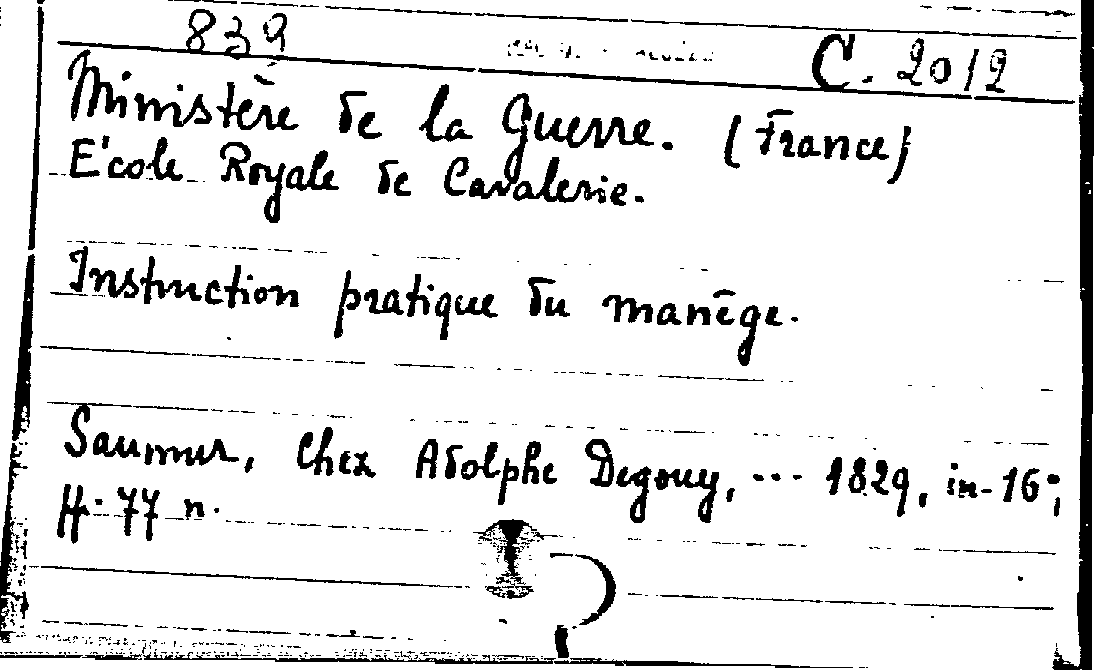 839
C. 2012
Ministère de la Guerre. (France)
École Royale de Cavalerie.
Instruction pratique du manège.
Saumur, Chez Adolphe Degouy, ... 1829, in-16°,
ff. 77 n.